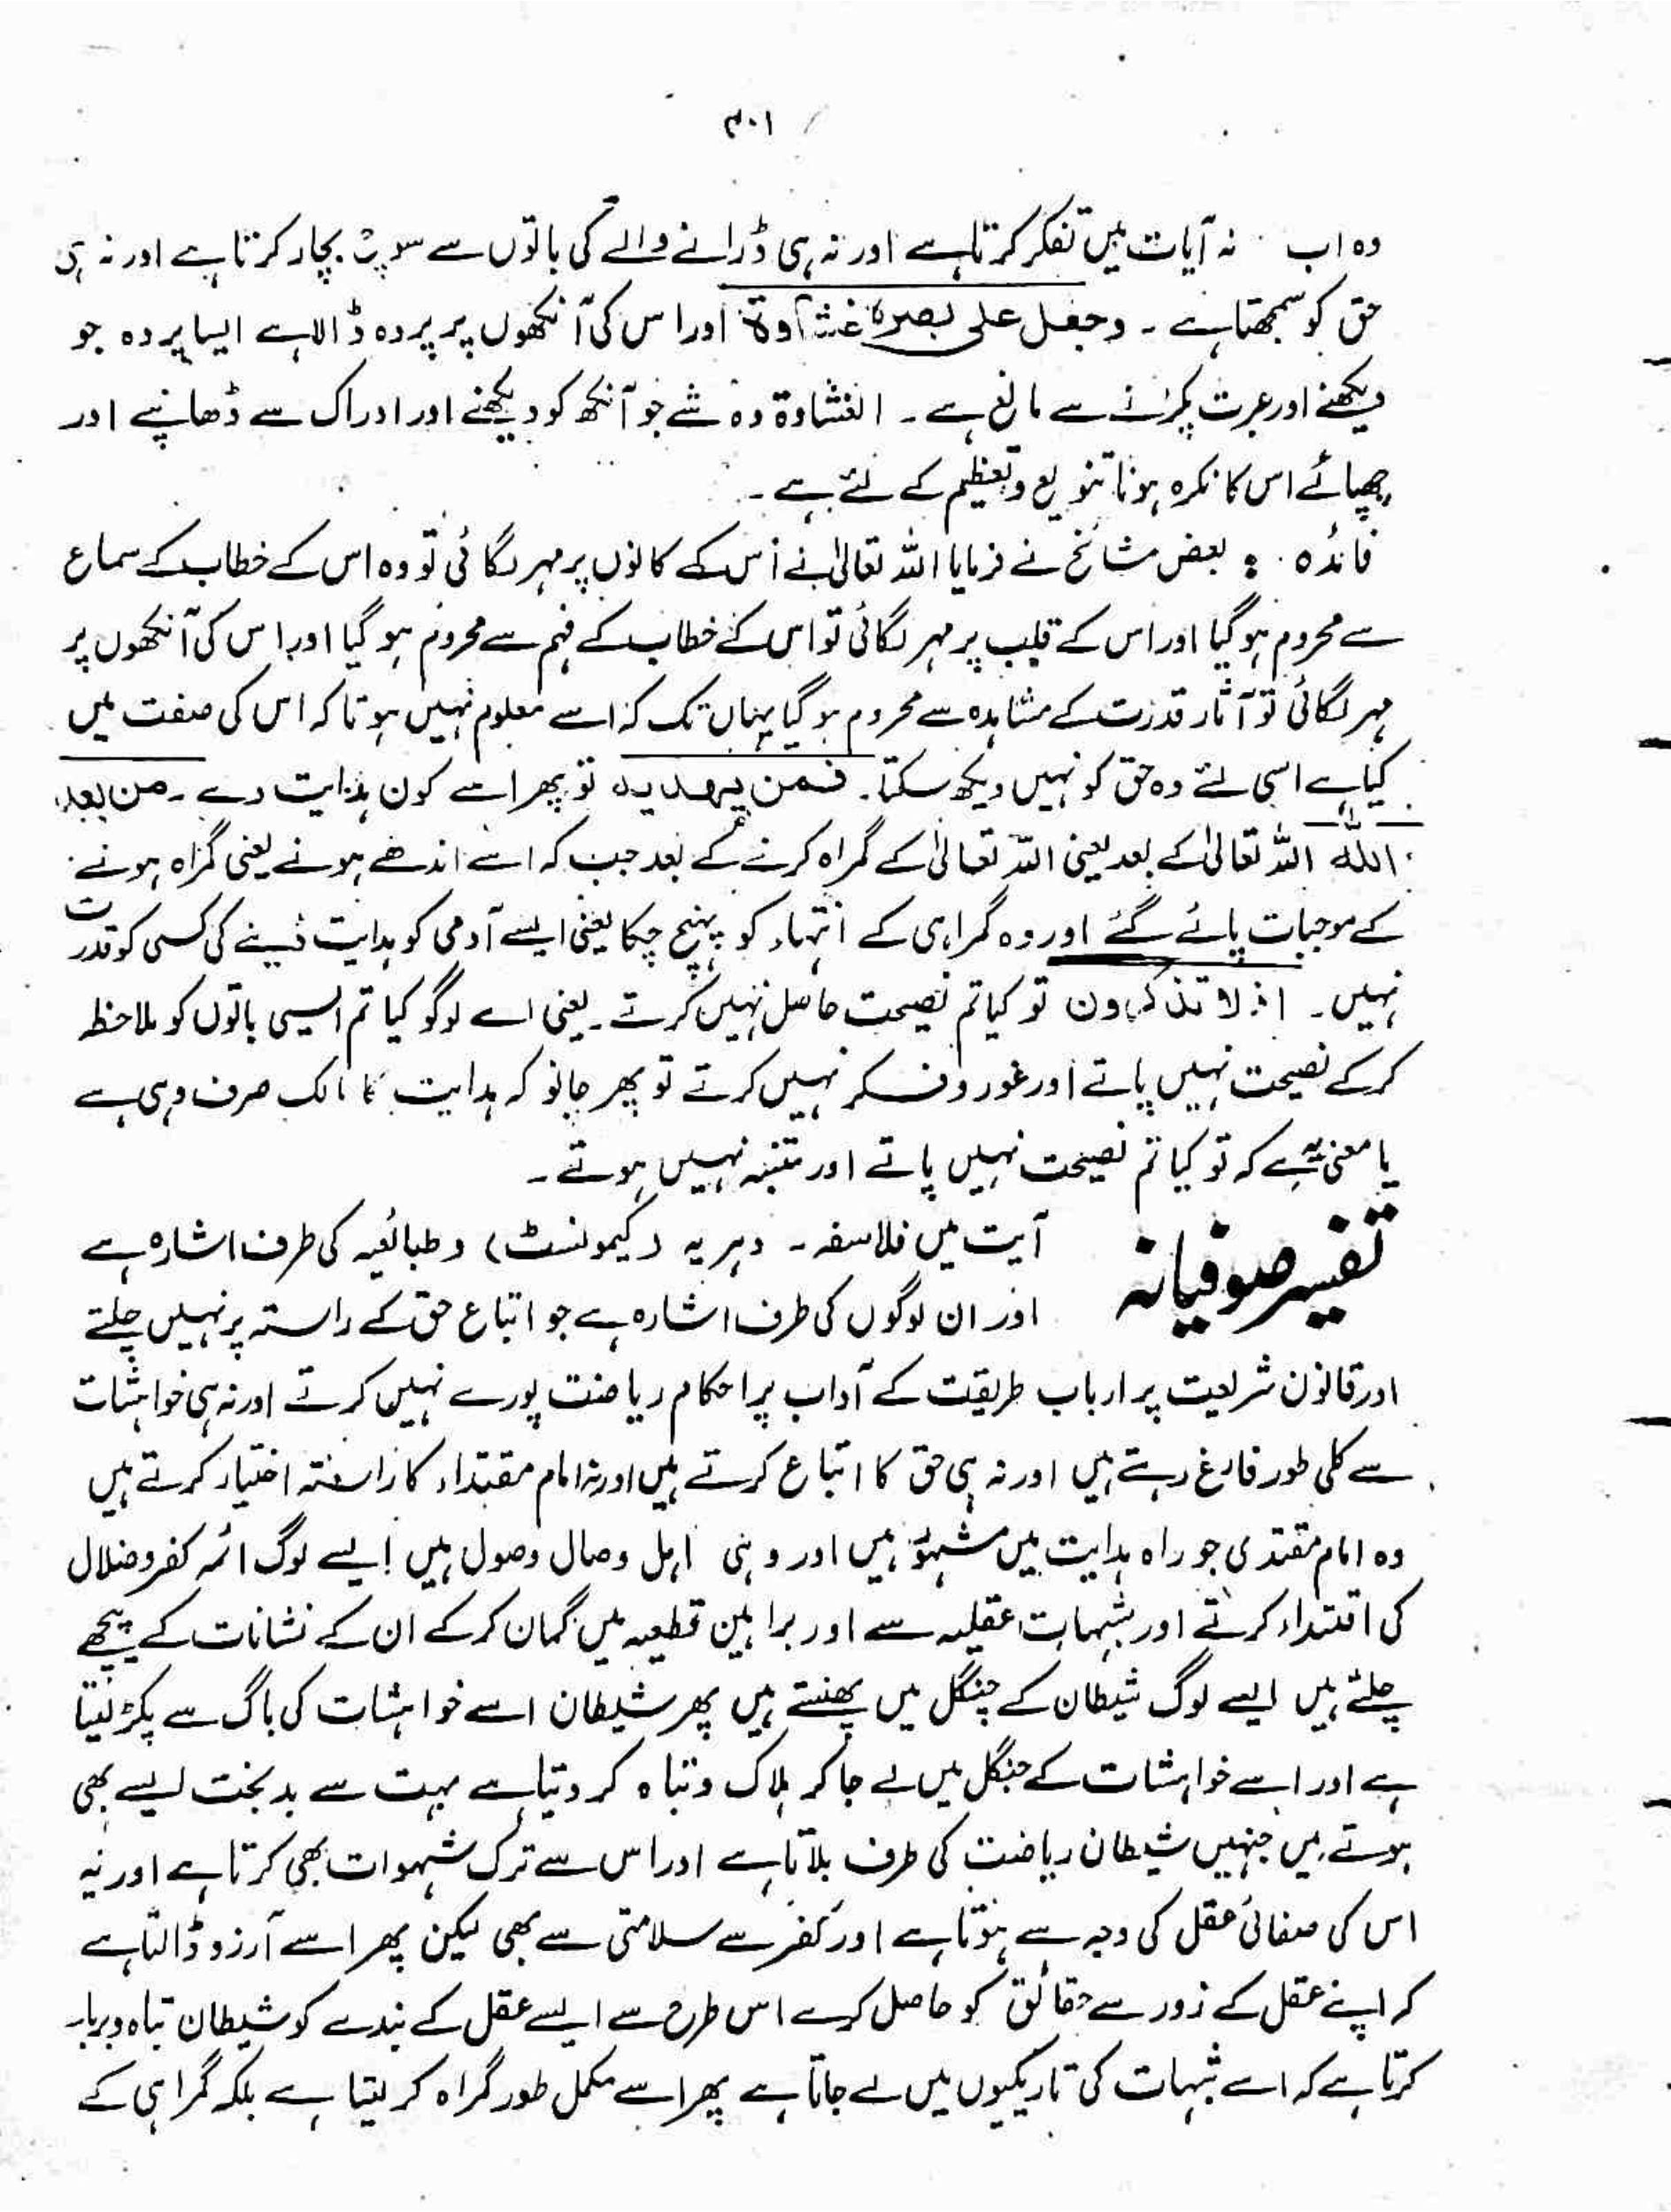 ۳۰۱
وہ اب نہ آیات میں تفکر کرتا ہے اور نہ ہی ڈرانے والے کی باتوں سے سوچ بچار کرتا ہے اور نہ ہی
حق کو سمجھتا ہے ۔ وجعل علی بصرہ غشاوۃ اور اس کی آنکھوں پر پردہ ڈالا ہے ایسا پردہ جو
دیکھنے اور عبرت پکڑنے سے مانع ہے ۔ الغشاوۃ وہ شے جو آنکھ کو دیکھنے اور ادراک سے ڈھانپے اور
چھپائے اس کا نکرہ ہونا تنویع و تعظیم کے لئے ہے ۔
فائدہ : بعض مشائخ نے فرمایا اللہ تعالیٰ نے اس کے کانوں پر مہر لگائی تو وہ اس کے خطاب کے سماع
سے محروم ہو گیا اور اس کے قلب پر مہر لگائی تو اس کے خطاب کے فہم سے محروم ہو گیا اور اس کی آنکھوں پر
مہر لگائی تو آثار قدرت کے مشاہدہ سے محروم ہو گیا یہاں تک کہ اسے معلوم نہیں ہوتا کہ اس کی صفت میں
کیا ہے اسی لئے وہ حق کو نہیں دیکھ سکتا ۔ فمن یھدیہ تو پھر اسے کون ہدایت دے ۔ من بعد
اللہ اللہ تعالیٰ کے بعد یعنی اللہ تعالیٰ کے گمراہ کرنے کے بعد جب کہ اسے اندھے ہونے یعنی گمراہ ہونے
کے موجبات پائے گئے اور وہ گمراہی کے انتہاء کو پہنچ چکا یعنی ایسے آدمی کو ہدایت دینے کی کسی کو قدرت
نہیں ۔ افلا تذکرون تو کیا تم نصیحت حاصل نہیں کرتے ۔ یعنی اے لوگو کیا تم ایسی باتوں کو ملاحظہ
کر کے نصیحت نہیں پاتے اور غور و فکر نہیں کرتے تو پھر جانو کہ ہدایت کا مالک صرف وہی ہے
یا معنی یہ ہے کہ تو کیا تم نصیحت نہیں پاتے اور متنبہ نہیں ہوتے ۔
تفسیر صوفیانہ آیت میں فلاسفہ ۔ دہریہ (کیمونسٹ) و طبائعیہ کی طرف اشارہ ہے
اور ان لوگوں کی طرف اشارہ ہے جو اتباع حق کے راستہ پر نہیں چلتے
اور قانون شریعت پر ارباب طریقت کے آداب پر احکام ریاضت پورے نہیں کرتے اور نہ ہی خواہشات
سے کلی طور فارغ رہتے ہیں اور نہ ہی حق کا اتباع کرتے ہیں اور نہ امام مقتداء کا راستہ اختیار کرتے ہیں
وہ امام مقتدی جو راہ ہدایت میں مشہور ہیں اور وہی اہل وصال وصول ہیں ایسے لوگ ائمہ کفر و ضلال
کی اقتداء کرتے اور شبہات عقلیہ سے اور براہین قطعیہ میں گمان کر کے ان کے نشانات کے پیچھے
چلتے ہیں ایسے لوگ شیطان کے چنگل میں پھنستے ہیں پھر شیطان اسے خواہشات کی باگ سے پکڑ لیتا
ہے اور اسے خواہشات کے جنگل میں لے جا کر ہلاک و تباہ کر دیتا ہے بہت سے بدبخت ایسے بھی
ہوتے ہیں جنہیں شیطان ریاضت کی طرف بلاتا ہے اور اس سے ترک شہوات بھی کرتا ہے اور یہ
اس کی صفائی عقل کی وجہ سے ہوتا ہے اور کفر سے سلامتی سے بھی لیکن پھر اسے آرزو ڈالتا ہے
کہ اپنے عقل کے زور سے حقائق کو حاصل کرے اس طرح سے ایسے عقل کے بندے کو شیطان تباہ و برباد
کرتا ہے کہ اسے شبہات کی تاریکیوں میں لے جاتا ہے پھر اسے مکمل طور گمراہ کر لیتا ہے بلکہ گمراہی کے